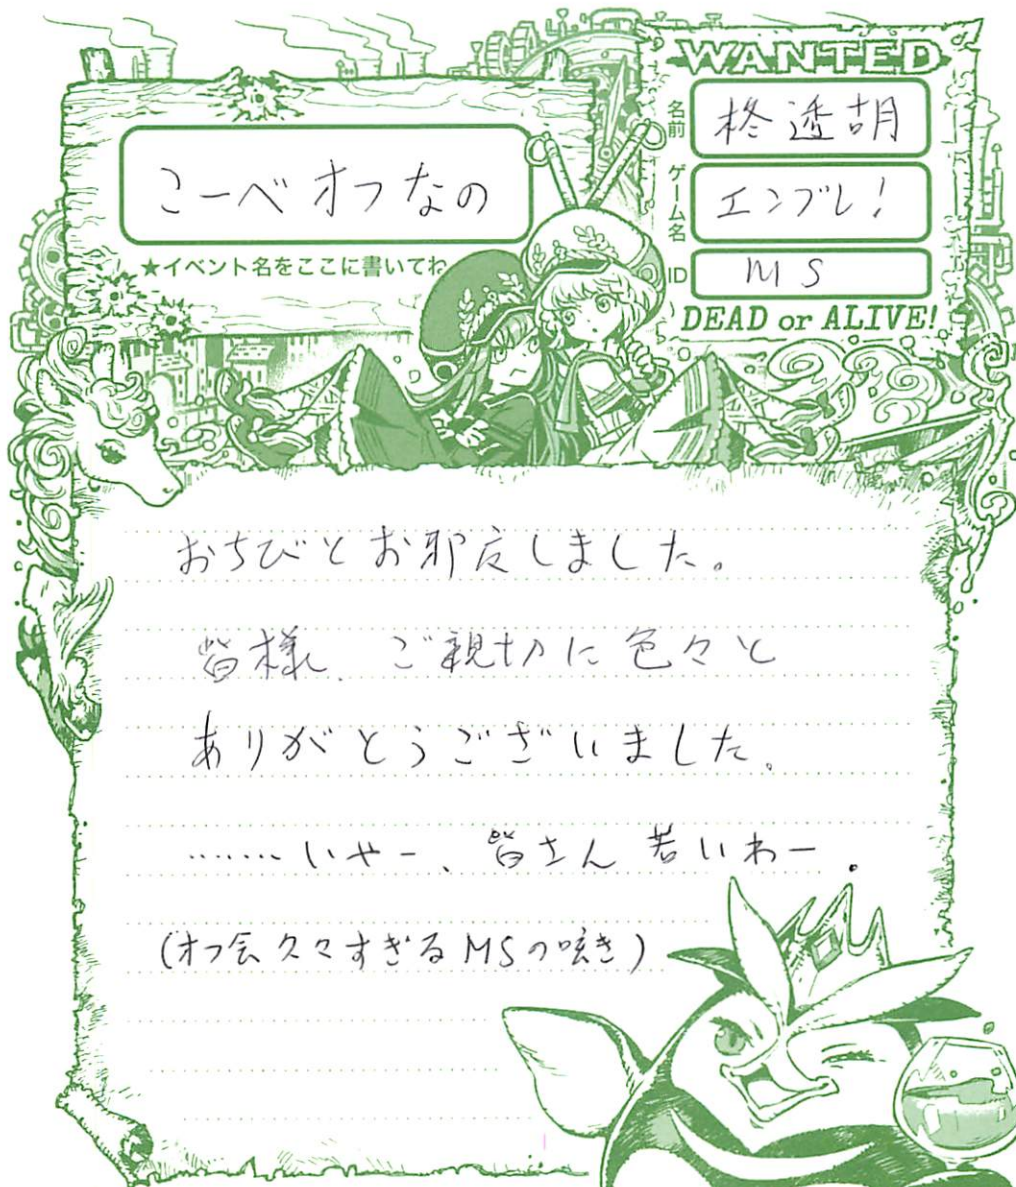 こーべオフなの
★イベント名をここに書いてね
WANTED
名前
柊透胡
ゲーム名
エンブレ!
ID
MS
DEAD or ALIVE!
おちびとお邪戻しました。
皆様、ご親切に色々と
ありがとうございました。
……… いやー、皆さん若いわー。
(オフ会久々すぎるMSの呟き)